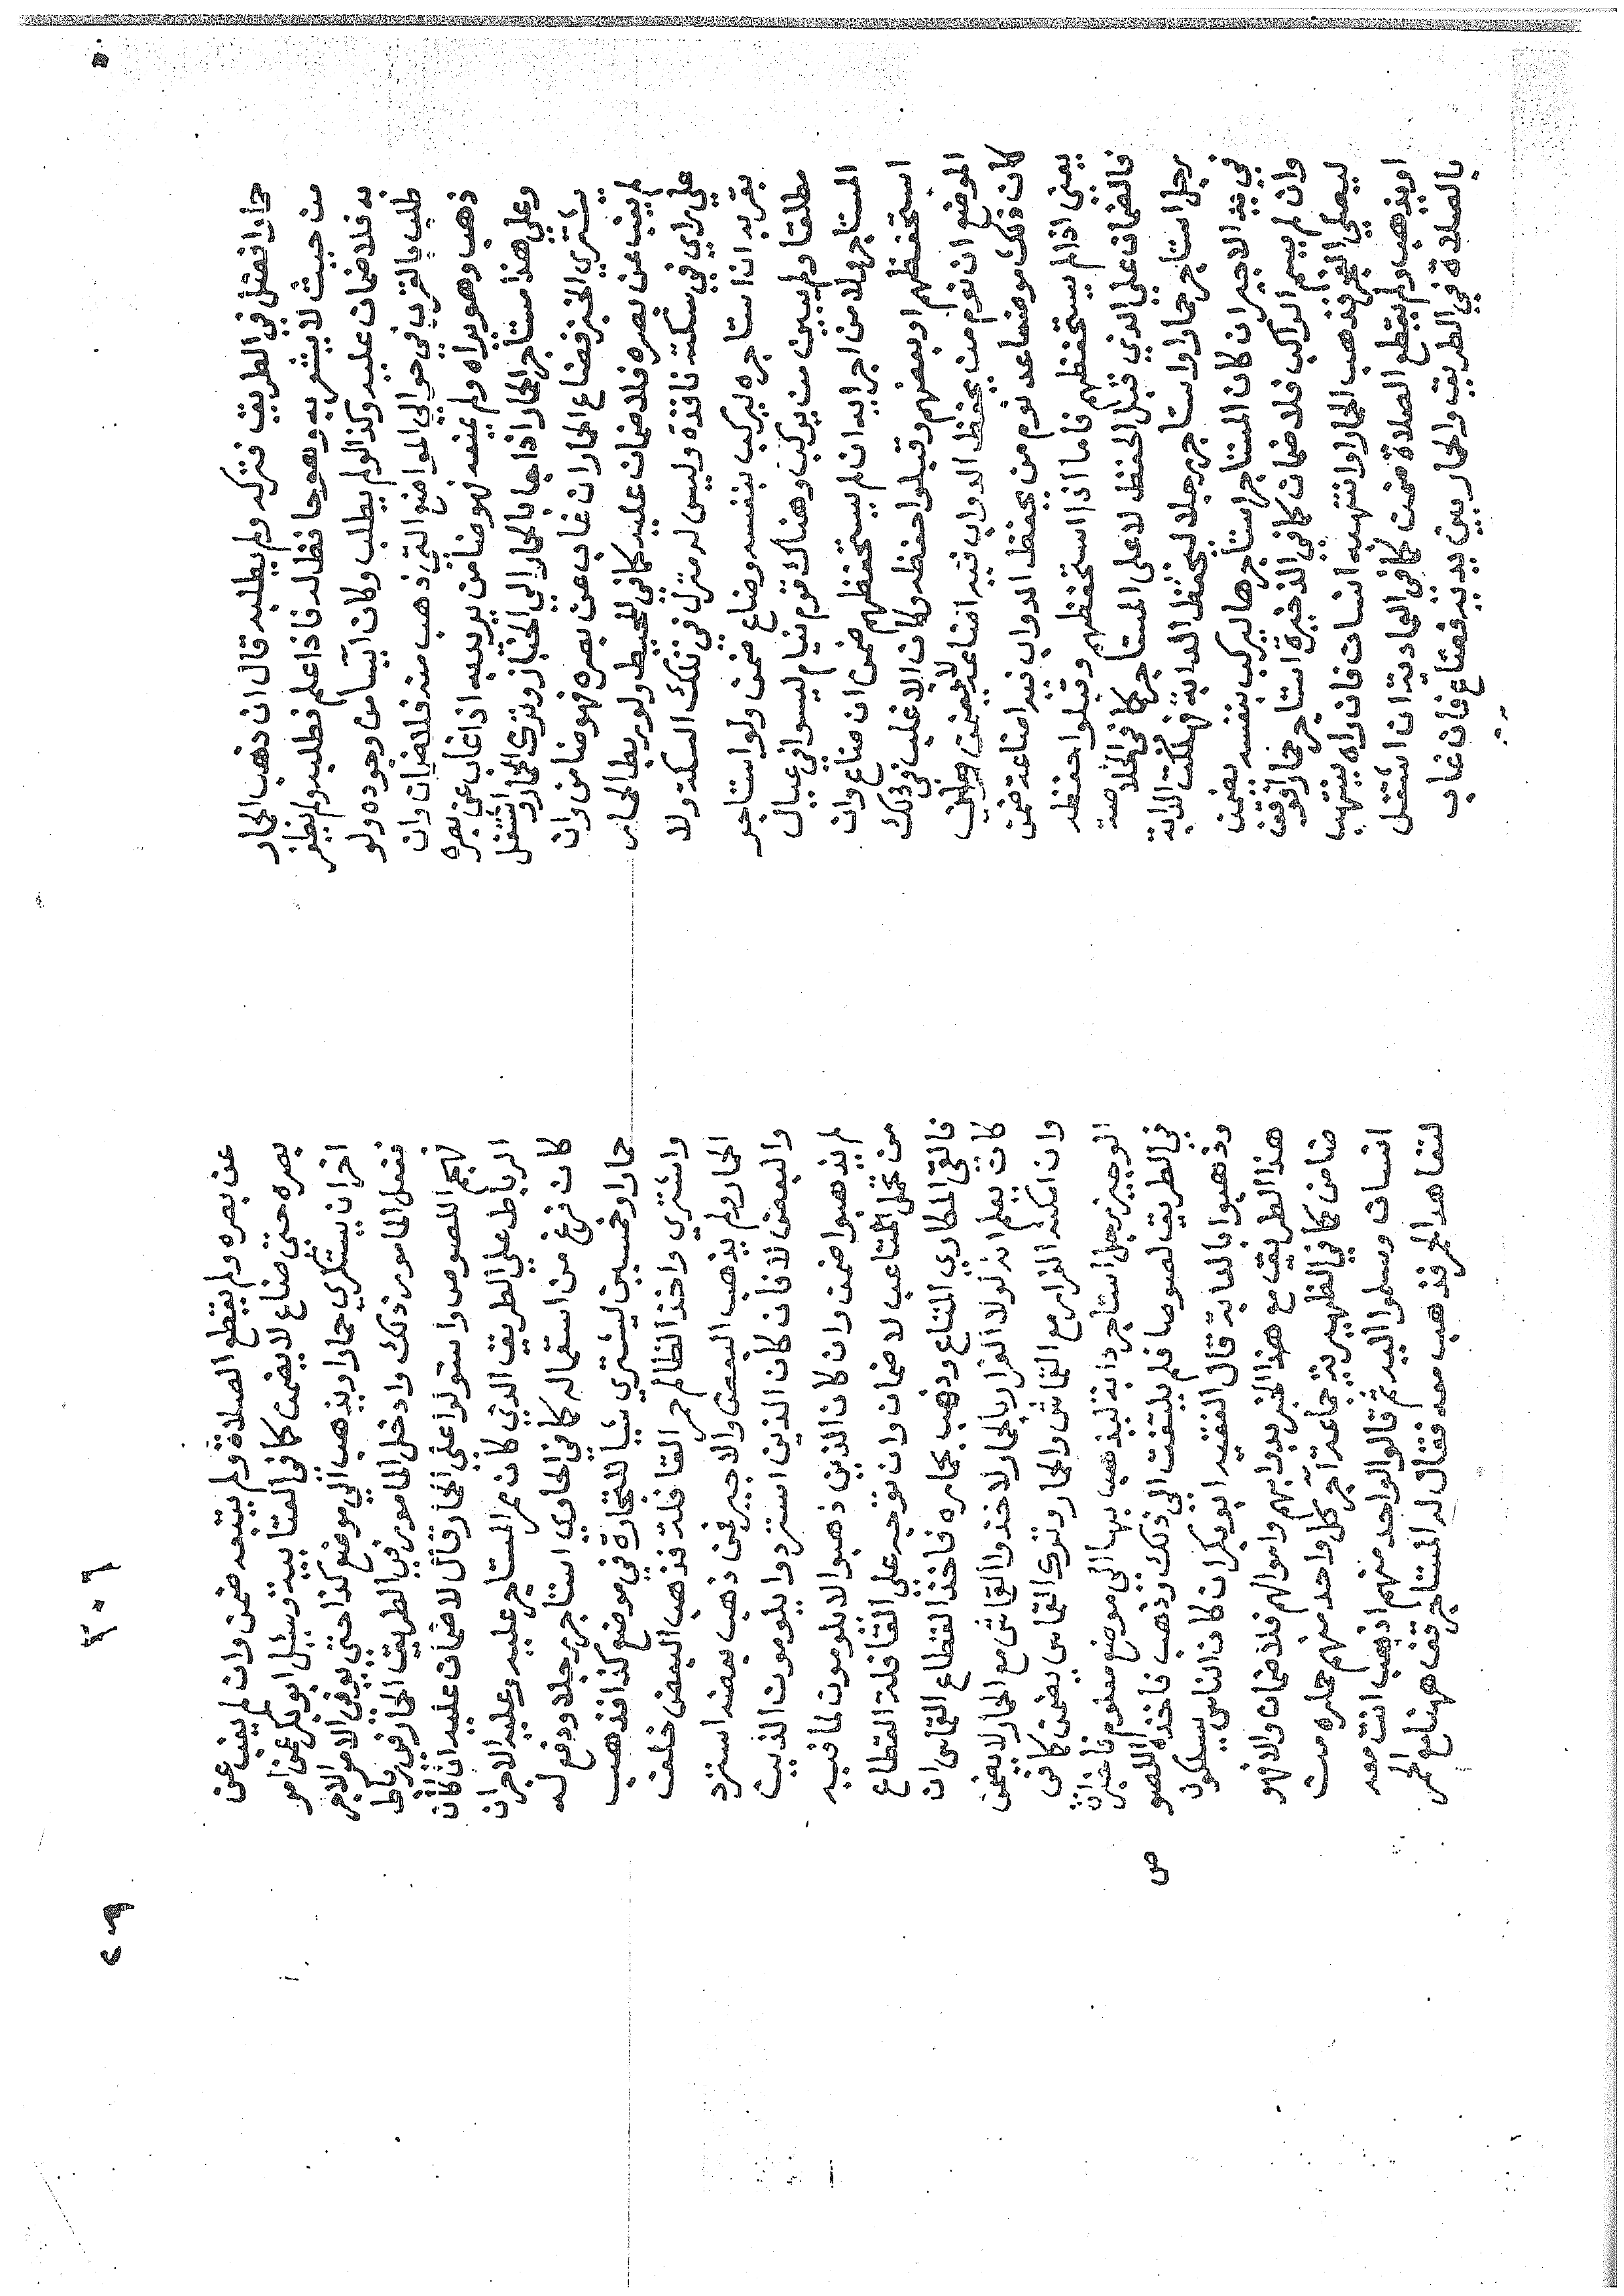 حمارا فعتل في الطريق فتركه ولم يطلبه قال ان ذهب الحمار
من حيث لا يشعر به وهو حافظ له فاذا علم فطلبه ولم يظفر
به فلا ضمان عليه وكذا لو لم يطلب وكان آيسا من وجوده ولو
طلب بالقرب في حوالي المواضع التي ذهب منه فلا ضمان وان
ذهب وهو يراه ولم يمنعه فهو ضامن يريد به اذا غاب عن بصره
وعلى هذا مستاجر الحمار اذا جا بالحمار الى الخباز وترك الحمار واشتغل
بشتري الخبز فضاع الحمار ان غاب عن بصره فهو ضامن وان
لم يغب عن بصره فلا ضمان عليه كما في المحيط ولو ربط الحمار
على راي في سكة نافذة وليس له منزل في تلك السكة ولا
بقربه ان استاجره ليركب بنفسه وضاع ضمن ولو استاجر
مطلقا ولم يبين من يركب وهناك قوم نيام ليسوا في عيال
المستاجر ولا من اجرايه ان لم يستحفظهم ضمن ان ضاع وان
استحفظهم او بعضهم وقبلوا حفظه وكان الاغلب في ذلك
الموضع ان نوم من يحفظ الدواب فيه اضاعة لا يضمن
كان ذلك موضعا عد نوم من يحفظ الدواب فيه اضاعة ضمن
يعني اذا لم يستحفظهم فاما اذا استحفظهم وقبلوا حفظه
فالضمان على الذي قبل الحفظ لا على المستاجر كما في الخلاصة
رجل استاجر حمارا واستاجر رجلا ليحفظ الدابة فهلكت الدابة
في يد الاجير ان كان المستاجر استاجرها ليركب بنفسه يضمن
وان لم يسم الراكب فلا ضمان كما في الذخيرة استاجر حمارا فوقف
ليصلي الفجر فذهب الحمار او انتهبه انسان فان راه ينتهب
او يذهب ولم يقطع الصلاة ضمن كما في العمادية ان اشتغل
بالصلاة في الطريق والحمار بين يديه فضاع فان غاب
عن بصره ولم يقطع الصلاة ولم يتبعه ضمن وان لم يغب عن
بصره حتى ضاع لا يضمن كما في العتابية وسيل ابو بكر عمن امر
اخر ان يستكري حمارا ويذهب الى موضع كذا حتى يوفي الامر الاجر
ففعل المامور ذلك وادخل المامور في الطريق الحمار في رباط
فهجم اللصوص واستولوا على الحمار قال لا ضمان عليه ان كان
الرباط على الطريق الذي كان يمر المستاجر عليه وعليه الاجر ان
كان فرغ من استعماله كما في الحاوي استاجر رجلا ودفع له
حمارا وخمسين ليشتري شيا للتجارة في موضع كذا فذهب
واشتري واخذ الظالم حمر القافلة فذهب البعض خلف
الحمار ولم يذهب البعض والاجير فمن ذهب بعضه استرد
والبعض لا فان كان الذين استردوا يلومون الذين
لم يذهبوا ضمن وان كان الذين ذهبوا لا يلومون لما فيه
من تحمل المتاعب لا ضمان وان توجه على القافلة القطاع
فالقى المكاري المتاع وذهب بحماره فاخذ القطاع القماش ان
كان يعلم انه لولا الفرار بالحمار لاخذوا القماش مع الحمار لا يضمن
وان امكنه الفرار مع القماش والحمار وترك القماش يضمن كما في
الوجيز رجل استاجر دابة ليذهب بها الى موضع معلوم فاخبر ان
في الطريق لصوصا فلم يلتفت الى ذلك وذهب فاخذه اللصو
ص
وذهبوا بالدابة قال الفقيه ابو بكر ان كان الناس يسلكون
هذا الطريق مع هذا الخبر بدوابهم واموالهم فلا ضمان والا فهو
ضامن كما في الظهيرية جماعة آجر كل واحد منهم حماره من
انسان وسلموا اليه ثم قالوا لواحد منهم اذهب انت معه
لتعاهد الحمر فذهب معه فقال له المستاجر قف ههنا مع الحمر